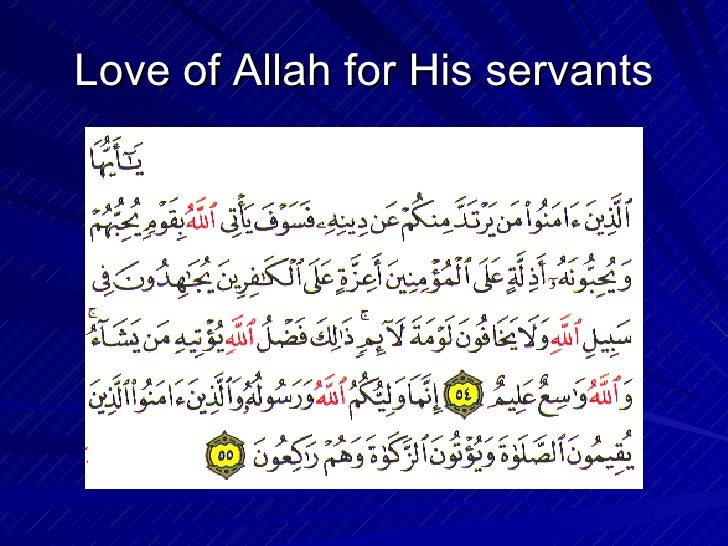 Love of Allah for His servants
يَـٰٓأَيُّهَا
ٱلَّذِينَ ءَامَنُوا۟ مَن يَرْتَدَّ مِنكُمْ عَن دِينِهِۦ فَسَوْفَ يَأْتِى ٱللَّهُ بِقَوْمٍ يُحِبُّهُمْ
وَيُحِبُّونَهُۥٓ أَذِلَّةٍ عَلَى ٱلْمُؤْمِنِينَ أَعِزَّةٍ عَلَى ٱلْكَـٰفِرِينَ يُجَـٰهِدُونَ فِى
سَبِيلِ ٱللَّهِ وَلَا يَخَافُونَ لَوْمَةَ لَآئِمٍ ۚ ذَٰلِكَ فَضْلُ ٱللَّهِ يُؤْتِيهِ مَن يَشَآءُ ۚ
وَٱللَّهُ وَٰسِعٌ عَلِيمٌ ٥٤ إِنَّمَا وَلِيُّكُمُ ٱللَّهُ وَرَسُولُهُۥ وَٱلَّذِينَ ءَامَنُوا۟ ٱلَّذِينَ
يُقِيمُونَ ٱلصَّلَوٰةَ وَيُؤْتُونَ ٱلزَّكَوٰةَ وَهُمْ رَٰكِعُونَ ٥٥